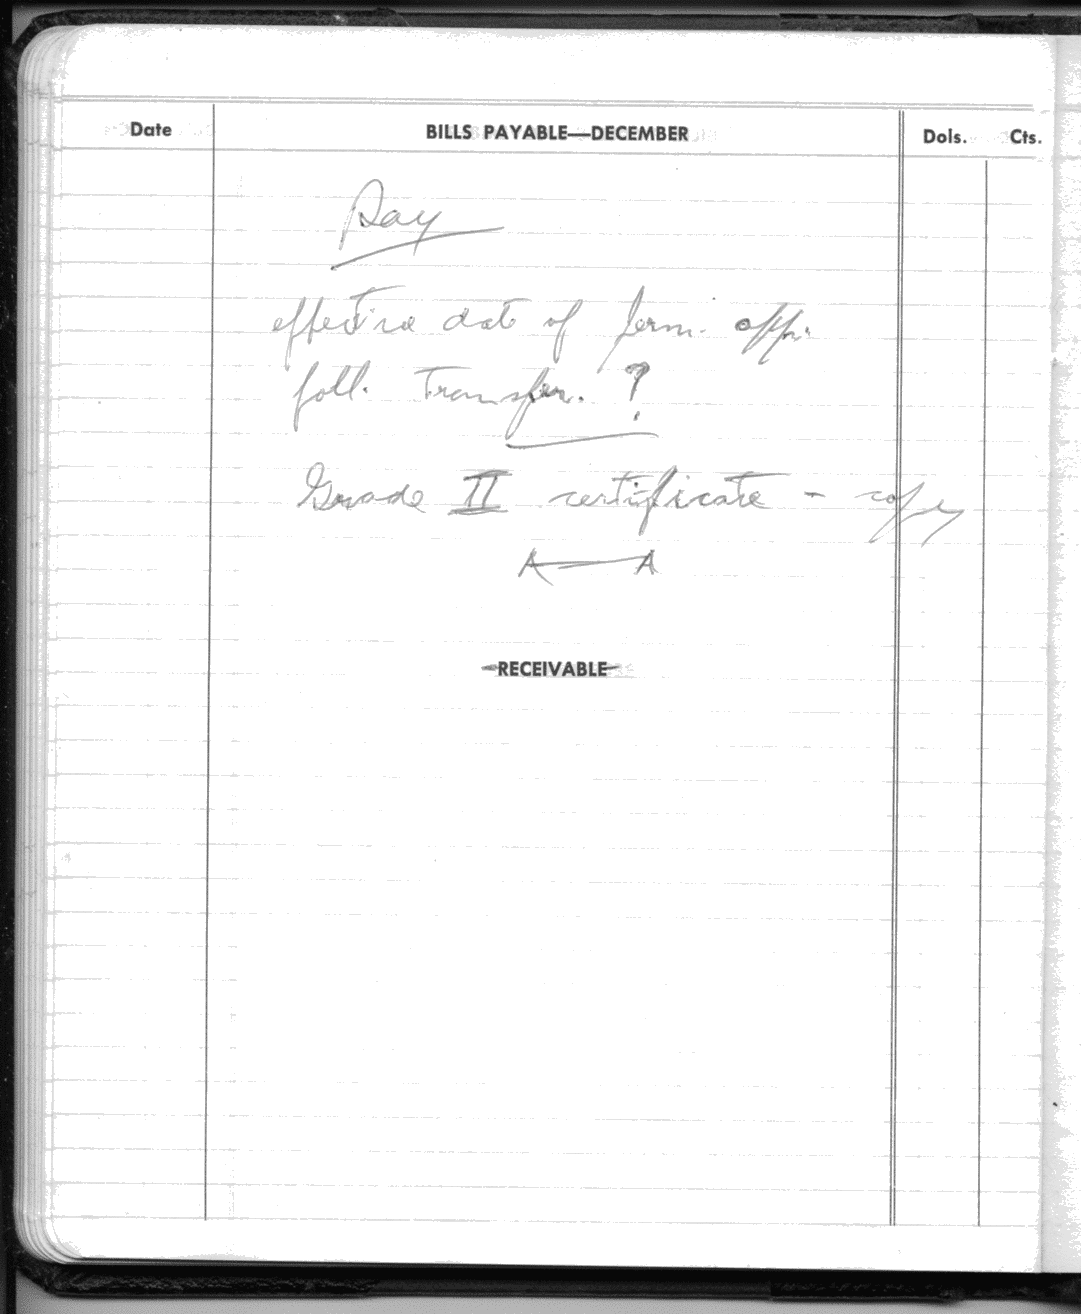 Date BILLS PAYABLE—DECEMBER Dols. Cts.
Pay
effective date of perm. app.
foll. Transfer. ?
Grade II certificate - copy
A — A
RECEIVABLE